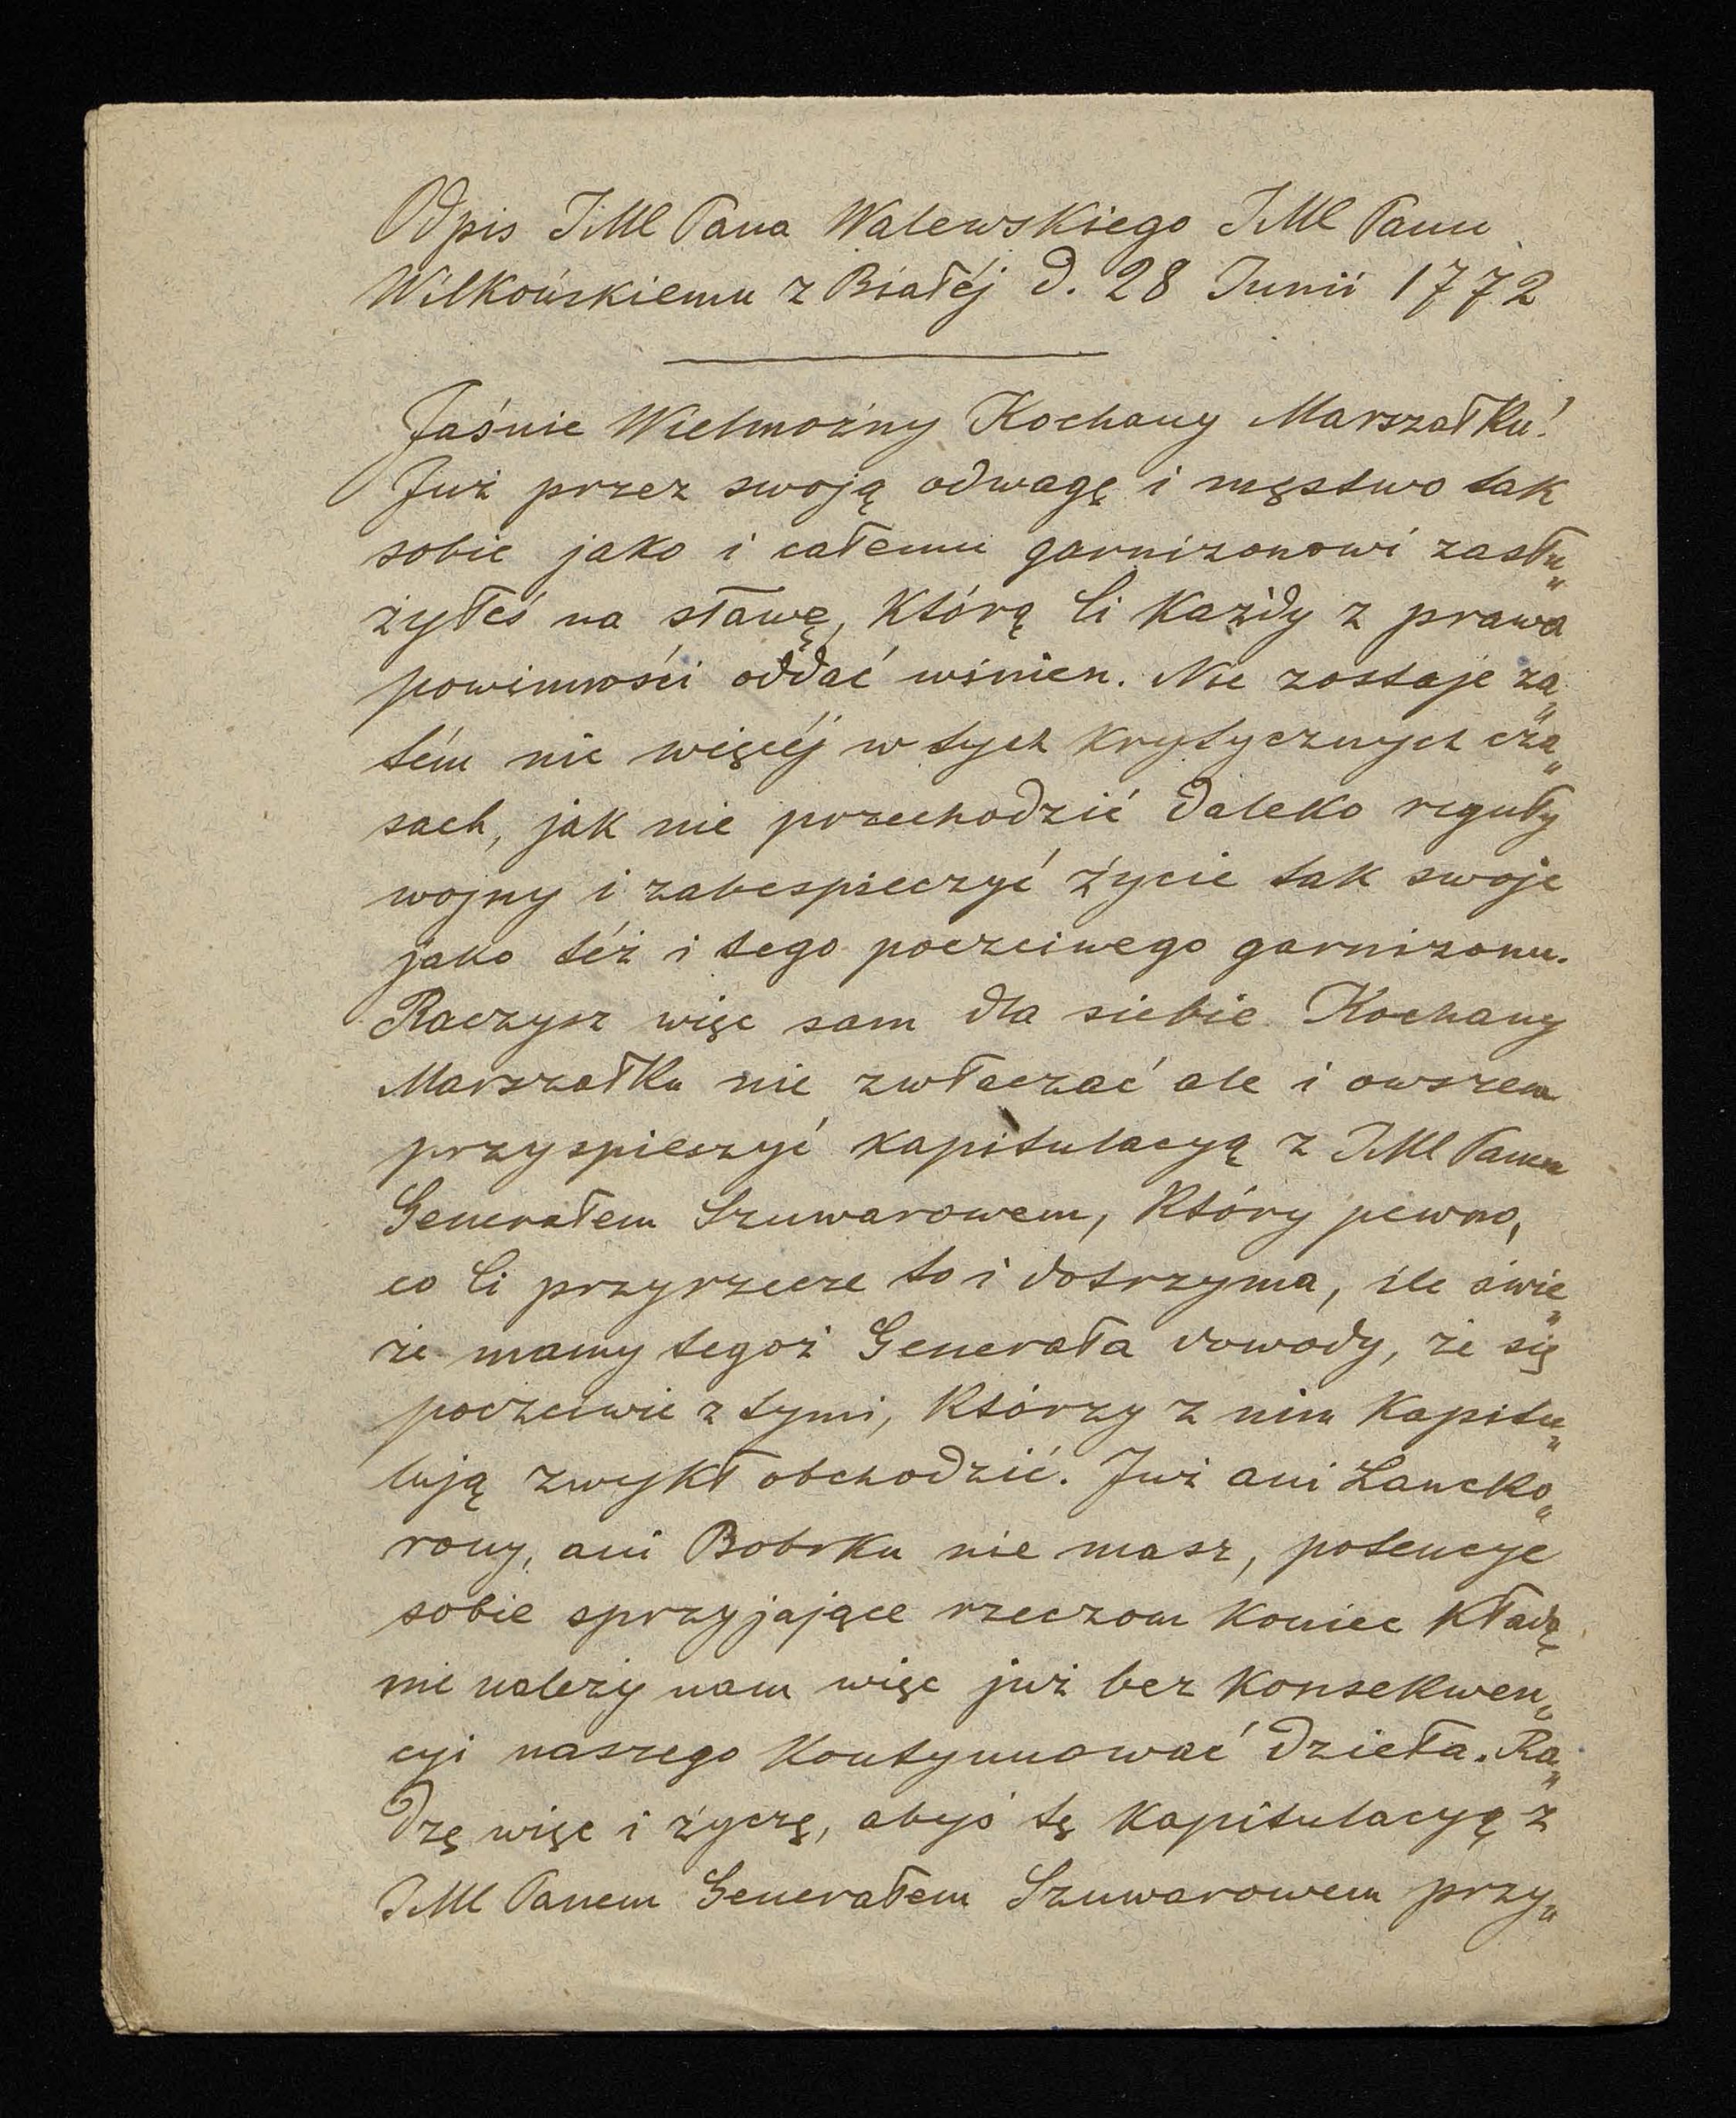 Odpis JMC Pana Walewskiego JMC Panu
Wilkońskiemu z Białéj d. 28 Junii 1772
Jaśnie Wielmożny Kochany Marszałku!
Już przez swoją odwagę i męstwo tak
sobie jako i całemu garnizonowi zasłu„
żyłeś na sławę, którą Ci każdy z prawa
powinności oddać winien. Nie zostaje za„
tém nic więcéj w tych krytycznych cza„
sach, jak nie przechodzić daleko reguły
wojny i zabespieczyć życie tak swoje
jako téż i tego poczciwego garnizonu.
Raczysz więc sam dla siebie Kochany
Marszałku nie zwłaczać ale i owszem
przyspieszyć kapitulacyą z JMC Panem
Generałem Szuwarowem, który pewno,
co Ci przyrzecze to i dotrzyma, ile świe„
że mamy tegoż Generała dowody, że się
poczciwie z tymi, którzy z nim kapitu„
lują zwykł obchodzić. Już ani Lancko„
rony, ani Bobrku nie masz, potencye
sobie sprzyjające rzeczom koniec kładą
nie należy nam więc już bez konsekwen„
cyi naszego kontynuować dzieła. Ra„
dzę więc i życzę, abyś tę kapitulacyą z
JMC Panem Generałem Szuwarowem przy„